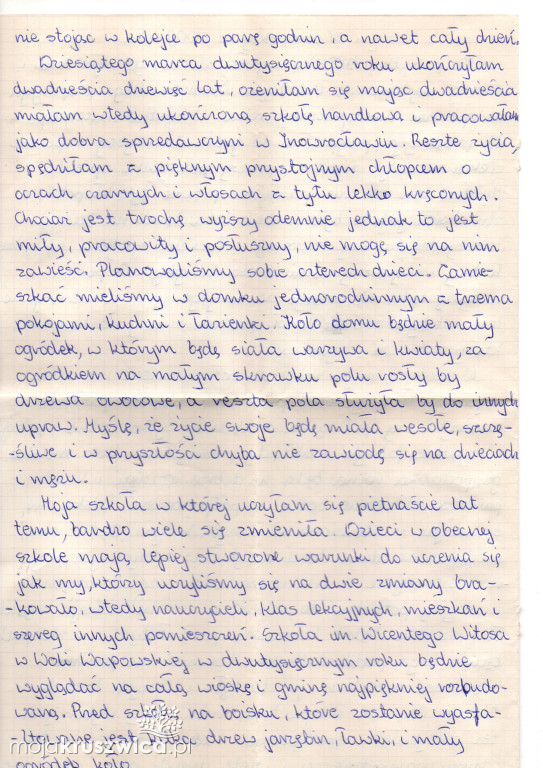 nie stojąc w kolejce po parę godzin, a nawet cały dzień.
Dziesiątego marca dwutysięcznego roku ukończyłam
dwadzieścia dziewięć lat, ożeniłam się mając dwadzieścia
miałam wtedy ukończoną szkołę handlową i pracowałam
jako dobra sprzedawczyni w Inowrocławiu. Resztę życia,
spędziłam z pięknym przystojnym chłopcem o
oczach czarnych i włosach z tyłu lekko kręconych.
Chociaż jest trochę wyższy odemnie jednak to jest
miły, pracowity i posłuszny, nie mogę się na nim
zawieść. Planowaliśmy sobie czterech dzieci. Zamie-
szkać mieliśmy w domku jednorodzinnym z trzema
pokojami, kuchni i łazienki. Koło domu będzie mały
ogródek, w którym będę siała warzywa i kwiaty, za
ogródkiem na małym skrawku polu rosły by
drzewa owocowe, a reszta pola służyła by do innych
upraw. Myślę, że życie swoje będę miała wesołe, szczę-
-śliwe i w przyszłości chyba nie zawiodę się na dzieciach
i mężu.
Moja szkoła w której uczyłam się pietnaście lat
temu, bardzo wiele się zmieniła. Dzieci w obecnej
szkole mają lepiej stworzone warunki do uczenia się
jak my, którzy uczyliśmy się na dwie zmiany bra-
-kowało, wtedy nauczycieli, klas lekcyjnych, mieszkań i
szereg innych pomieszczeń. Szkoła im. Wicentego Witosa
w Woli Wapowskiej w dwutysięcznym roku będzie
wyglądać na całą wioskę i gminę najpiękniej rozbudo-
waną. Przed szkołą na boisku, które zostanie wyasfa-
-ltowane jest kilka drzew jarzębin, ławki, i mały
ogródek koło
mojakruszwica.pl